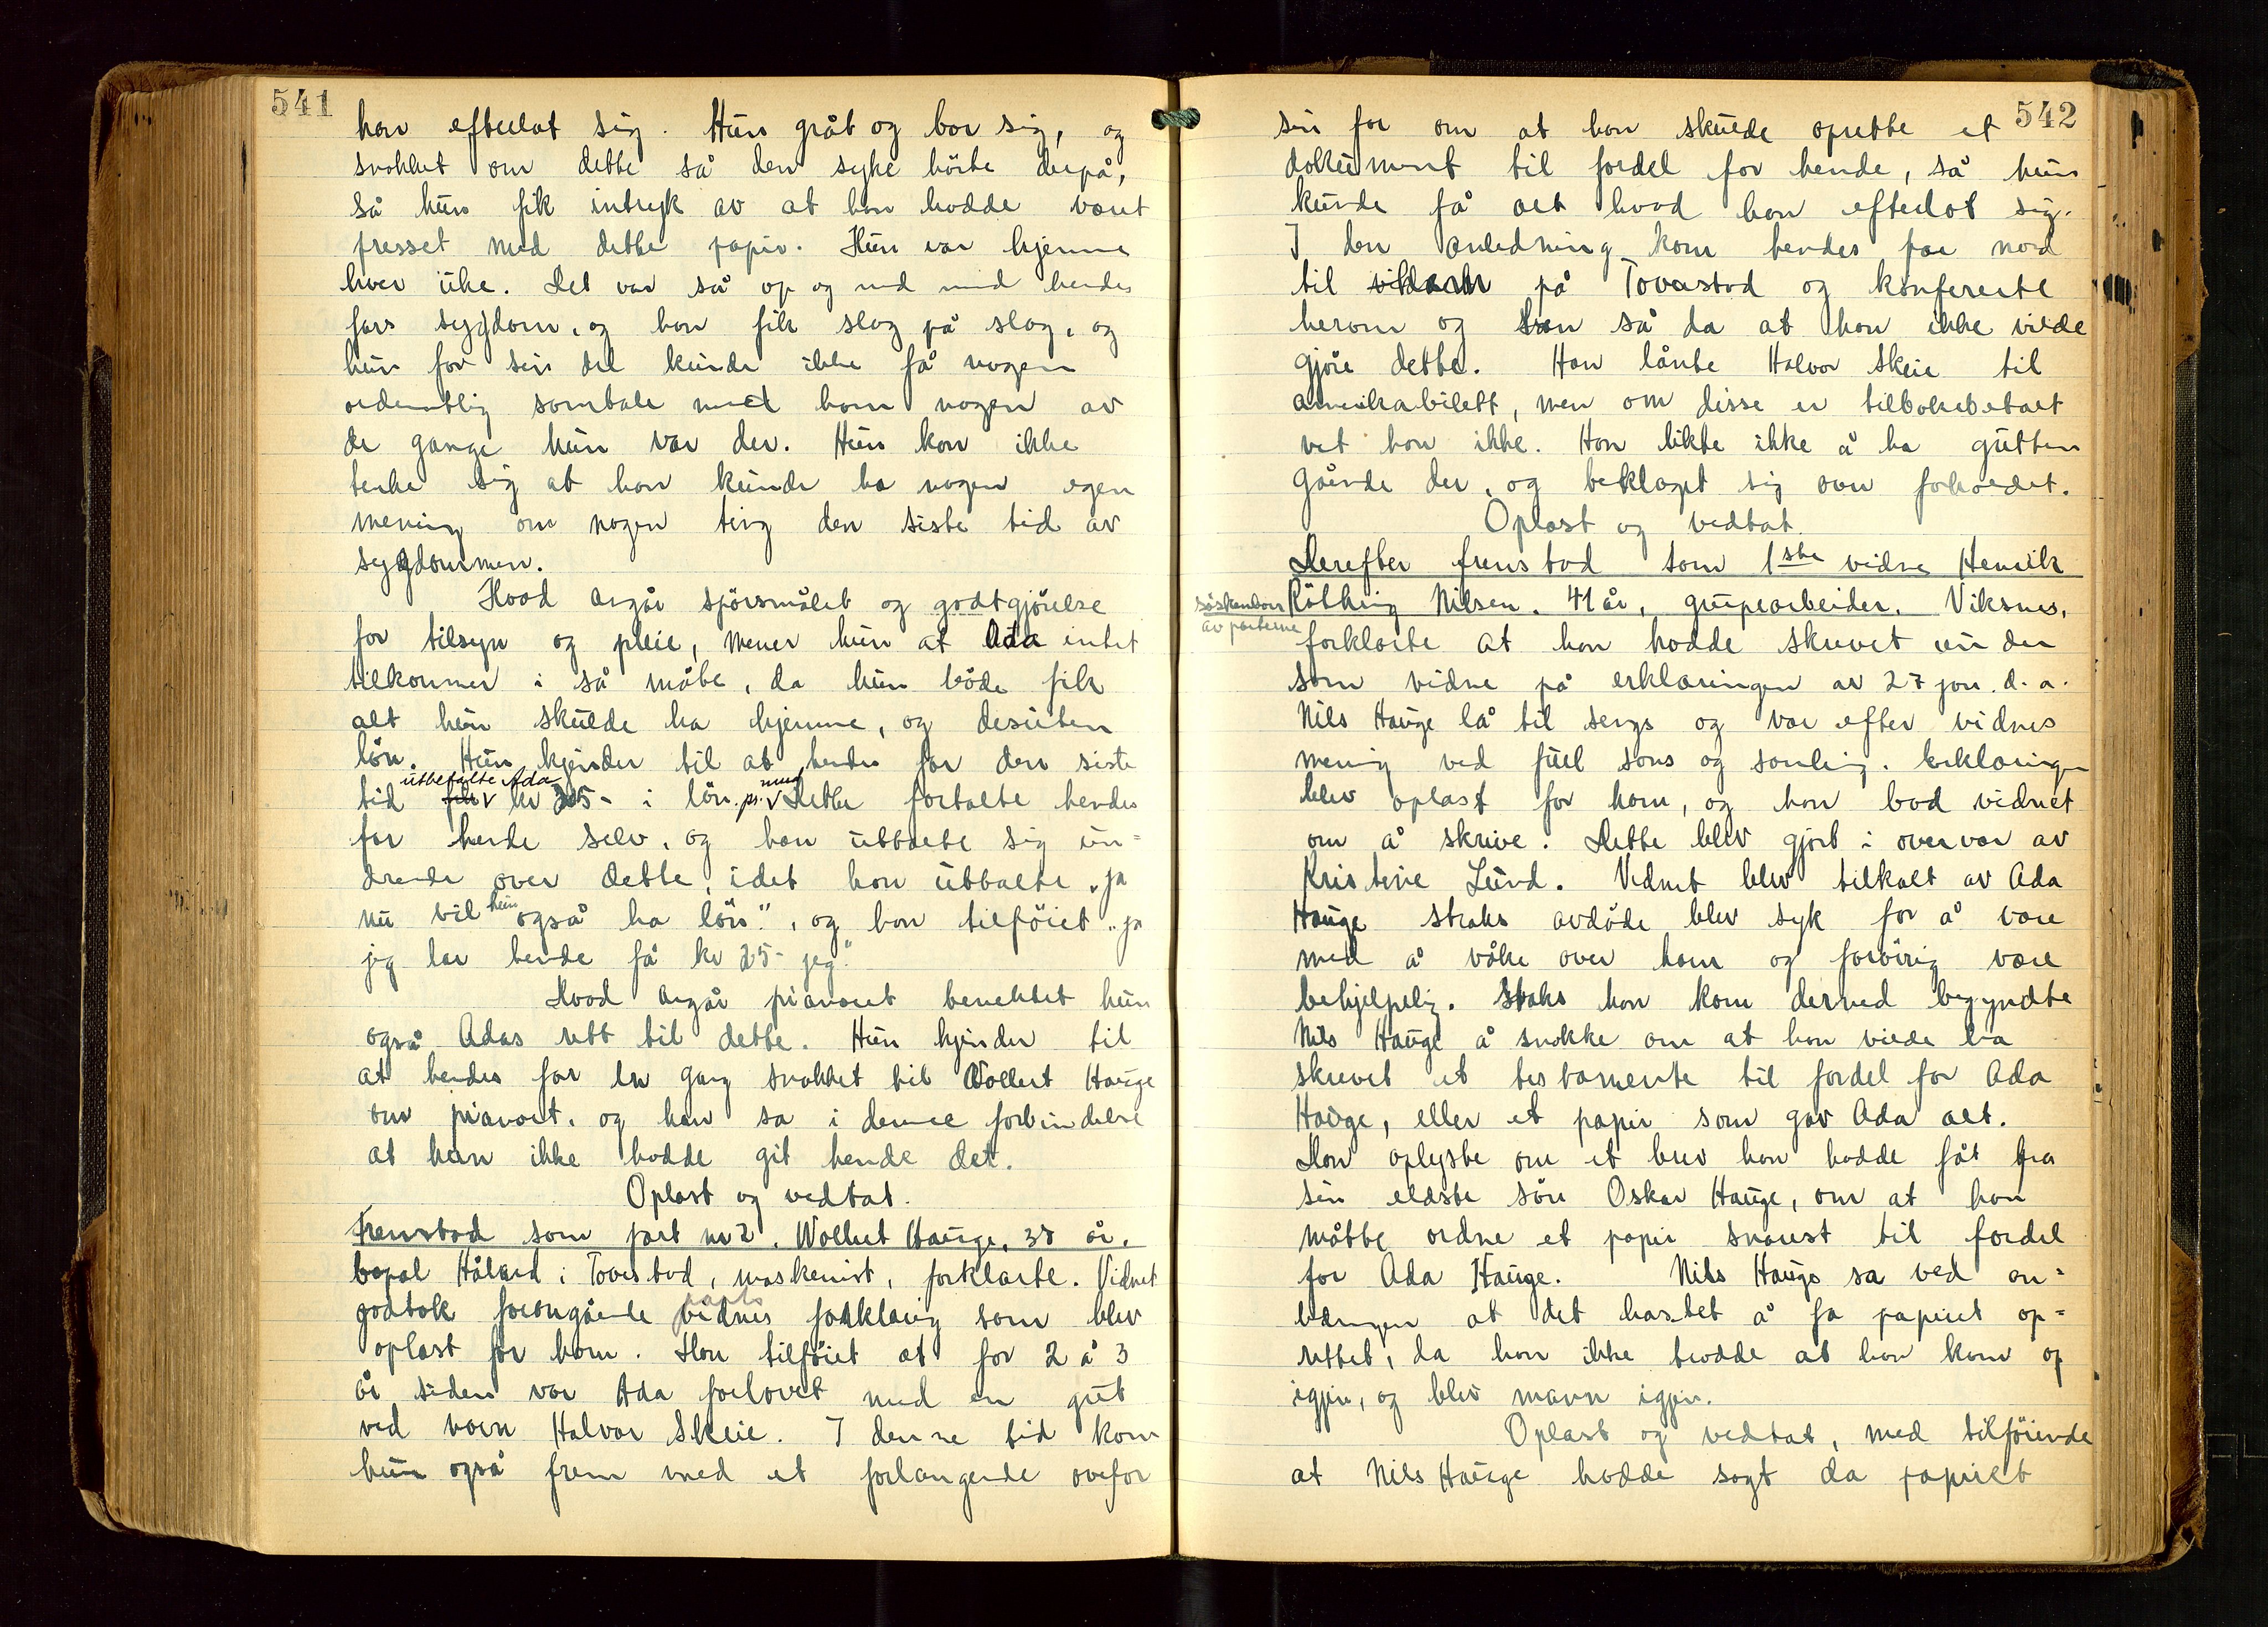 541
han efterlot sig. Hun gråt og bar sig, og
snakket om dette så den syke hörte derpå,
så hun fik intryk av at han hadde været
presset med dette papir. Hun var hjemme
hver uke. Det var så op og ned med hendes
fars sygdom, og han fik slag på slag, og
hun for sin del kunde ikke få nogen
ordentlig samtale med ham nogen av
de gange hun var der. Hun kan ikke
tenke sig at han kunde ha nogen egen
mening om nogen ting den siste tid av
sygdommen.
Hvad angår spörsmålet og godtgjörelse
for tilsyn og pleie, mener hun at Ada intet
tilkommer i så måte, da hun både fik
alt hun skulde ha hjemme, og desuten
lön. Hun kjender til at hendes far den siste
utbetalte Ada mnd
tid fik kr 25- i lön. pr. Dette fortalte hendes
far hende selv, og han uttalte sig un=
drende over dette, idet han uttalte „ja
nu vil hun også ha lön", og han tilföiet „ja
jeg lar hende få kr 25- jeg."
Hvad angår pianoet benektet hun
også Adas rett til dette. Hun kjender til
at hendes far en gang snakket til Wollert Hauge
om pianoet, og han sa i denne forbindelse
at han ikke hadde git hende det.
Oplæst og vedtat.
Fremstod som part nr 2. Wollert Hauge, 38 år,
bopæl Håland i Torvastad, maskenist, forklarte. Vidnet
parts
godtok forangående vidnes forklaring som blev
oplæst for ham. Han tilföiet at for 2 å 3
år siden var Ada forlovet med en gut
ved navn Halvor Skeie. I denne tid kom
hun også frem med et forlangende overfor
542
sin far om at han skulde oprette et
dokument til fordel for hende, så hun
kunde få alt hvad han efterlot sig.
I den anledning kom hendes far nord
til på Torvastad og konfererte
herom og han sa da at han ikke vilde
gjöre dette. Han lånte Halvor Skeie til
amerikabilett, men om disse er tilbakebetalt
vet han ikke. Han likte ikke å ha gutten
gående der, og beklaget sig over forholdet.
Oplæst og vedtat
Derefter fremstod som 1ste vidne Henrik
Röthing Nilsen. 41 år, grubearbeider, Viksnes,
söskenbarn
av parterne
forklarte at han hadde skrevet under
som vidne på erklæringen av 27 jan. d.a.
Nils Hauge lå til sengs og var efter vidnes
mening ved fuld sans og samling. Erklæringen
blev oplæst for ham, og han bad vidnet
om å skrive. Dette blev gjort i overvær av
Kristine Lund. Vidnet blev tilkalt av Ada
Hauge straks avdöde blev syk for å være
med å våke over ham og forövrig være
behjelpelig. Straks han kom derned begyndte
Nils Hauge å snakke om at han vilde ha
skrevet et testamente til fordel for Ada
Hauge, eller et papir som gav Ada alt.
Han oplyste om et brev han hadde fåt fra
sin eldste sön Oskar Hauge, om at han
måtte ordne et papir snarest til fordel
for Ada Hauge. Nils Hauge sa ved an=
ledningen at det hastet å få papiret op=
rettet, da han ikke trodde at han kom op
igjen, og blev mann igjen.
Oplæst og vedtat, med tilföiende
at Nils Hauge hadde sagt da papiret